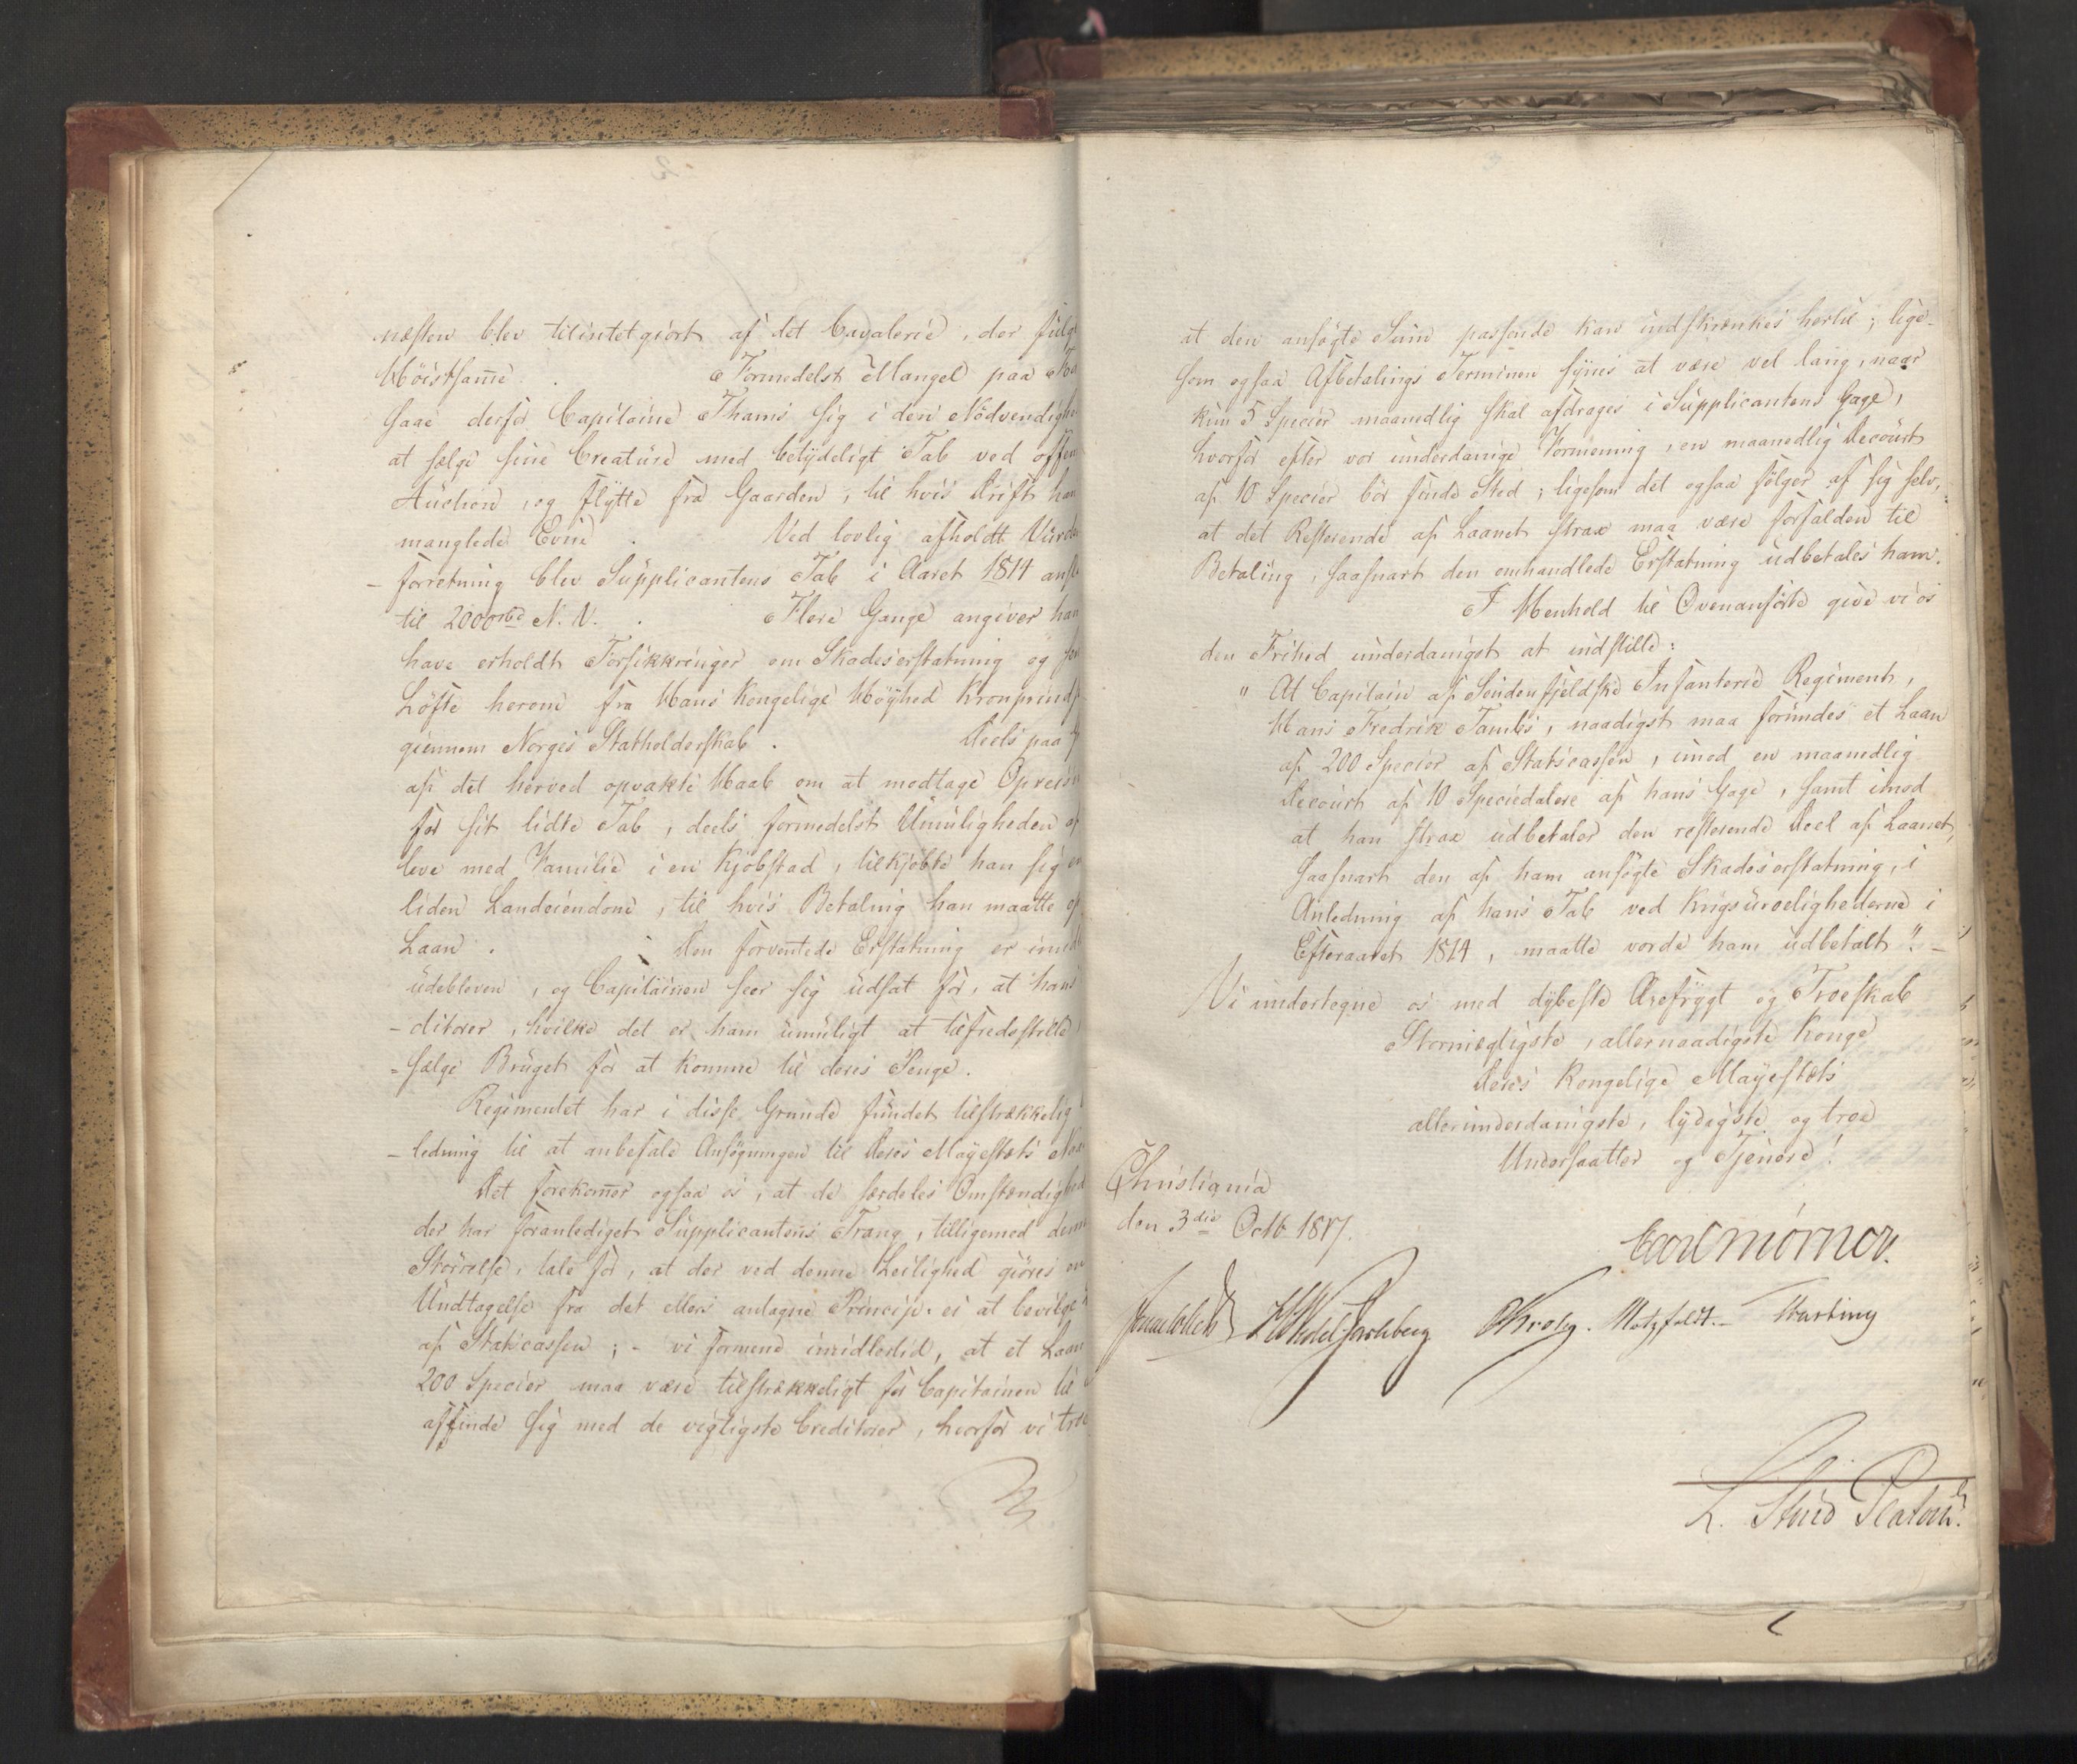 næsten blev tilintetgiort af det Cavalerie, der fulgt
Höistsam̅e. Formedelst Mangel paa
saae derfor Capitaine Thams sig i den Nödvendighe
at sælge sine Creature med betydeligt Tab ved offen
Auction, og flytte fra Gaarden, til hvis Drift han
manglede Evne. Ved lovlig afholdt Vurde
-forretning blev Supplicantens Tab i Aaret 1814 ansl
til 2000 rbd N. V. Flere Gange angiver han
have erholdt Forsikkringer om Skadeserstatning og
Löfte herom fra Hans Kongelige Höyhed Kronprinds
giennem Norges Statholderskab. Deels paa
af det herved opvakte Haab om at modtage Opreisn
for sit lidte Tab, deels formedelst Umuligheden af
leve med Familie i en Kjöbstad, tilkjöbte han sig en
liden Landeiendom, til hvis Betaling han maatte
Laan. Den forventede Erstatning er imidl
udebleven, og Capitainen seer sig udsat for, at hans
-ditorer, hvilke det er ham umuligt at tilfredsstille,
=sælge Bruget for at komme til deres Penge.
Regimentet har i disse Grunde fundet tilstrækkelig
-ledning til at anbefale Ansögningen til Deres Mayestæts
Det forekom̅er ogsaa os, at de særdeles Omstændighed
der har foranlediget Supplicantens Trang, tilligemed denn
Störrelse, tale for, at der ved denne Leilighed giöres en
Undtagelse fra det ellers antagne Princip. ei at bevilge
af Statscassen; - vi formene imidlertid, at et Laan
200 Specier maa være tilstrækkeligt for Capitainen til
affinde sig med de vigtigste Creditorer, hvorfor vi troe
at den ansögte Sum passende kan indskrænkes hertil; lige-
som ogsaa Afbetalings Terminen synes at være vel lang, naar
kun 5 Specier maanedlig skal afdrages i Supplicantens Gage,
hvorfor efter vor underdanige Formening, en maanedlig Decourt
af 10 Specier bör finde Sted; ligesom det ogsaa fölger af sig selv,
at det Resterende af Laanet strax maa være forfalden til
Betaling, saasnart den omhandlede Erstatning udbetales ham.
I Henhold til Ovenanförte give vi os
den Frihed underdanigst at indstille:
" At Capitain af Söndenfjeldske Infanterie Regiment,
Hans Fredrik Tambs, naadigst maa forundes et Laan
af 200 Specier af Statscassen, imod en maanedlig
Decourt af 10 Speciedalere af hans Gage, samt imod
at han strax udbetaler den resterende Deel af Laanet,
saasnart den af ham ansögte Skadeserstatning, i
Anledning af hans Tab ved Krigsuroelighederne i
Efteraaret 1814, maatte vorde ham udbetalt". -
Vi undertegne os med dybeste Ærefrygt og Troeskab
Stormægtigste, allernaadigste Konge
Deres Kongelige Mayestæts
allerunderdanigste, lydigste og troe
Undersaatter og Tjenere!
Christiania
den 3die Octb 1817.
Carl Mörner.
Sommelhielm HWedel Jarlsberg CKrohg. Motzfeldt. -
L. Stud Platou